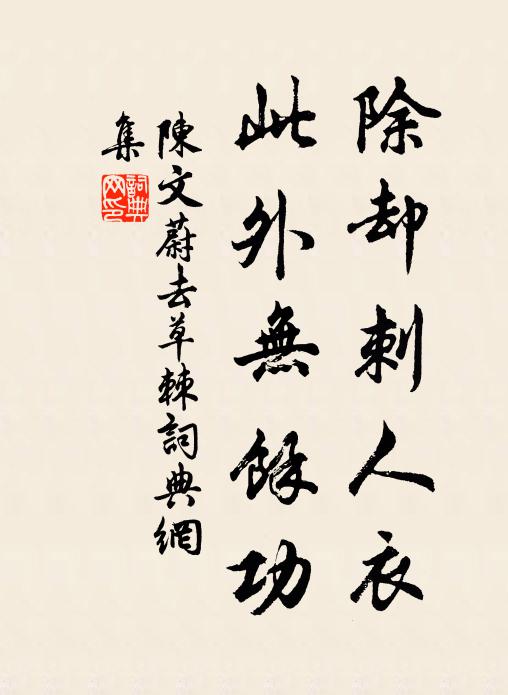 除却刺人衣
此外無餘功
陳文蔚去草棘詞典網
集
詞典
網印